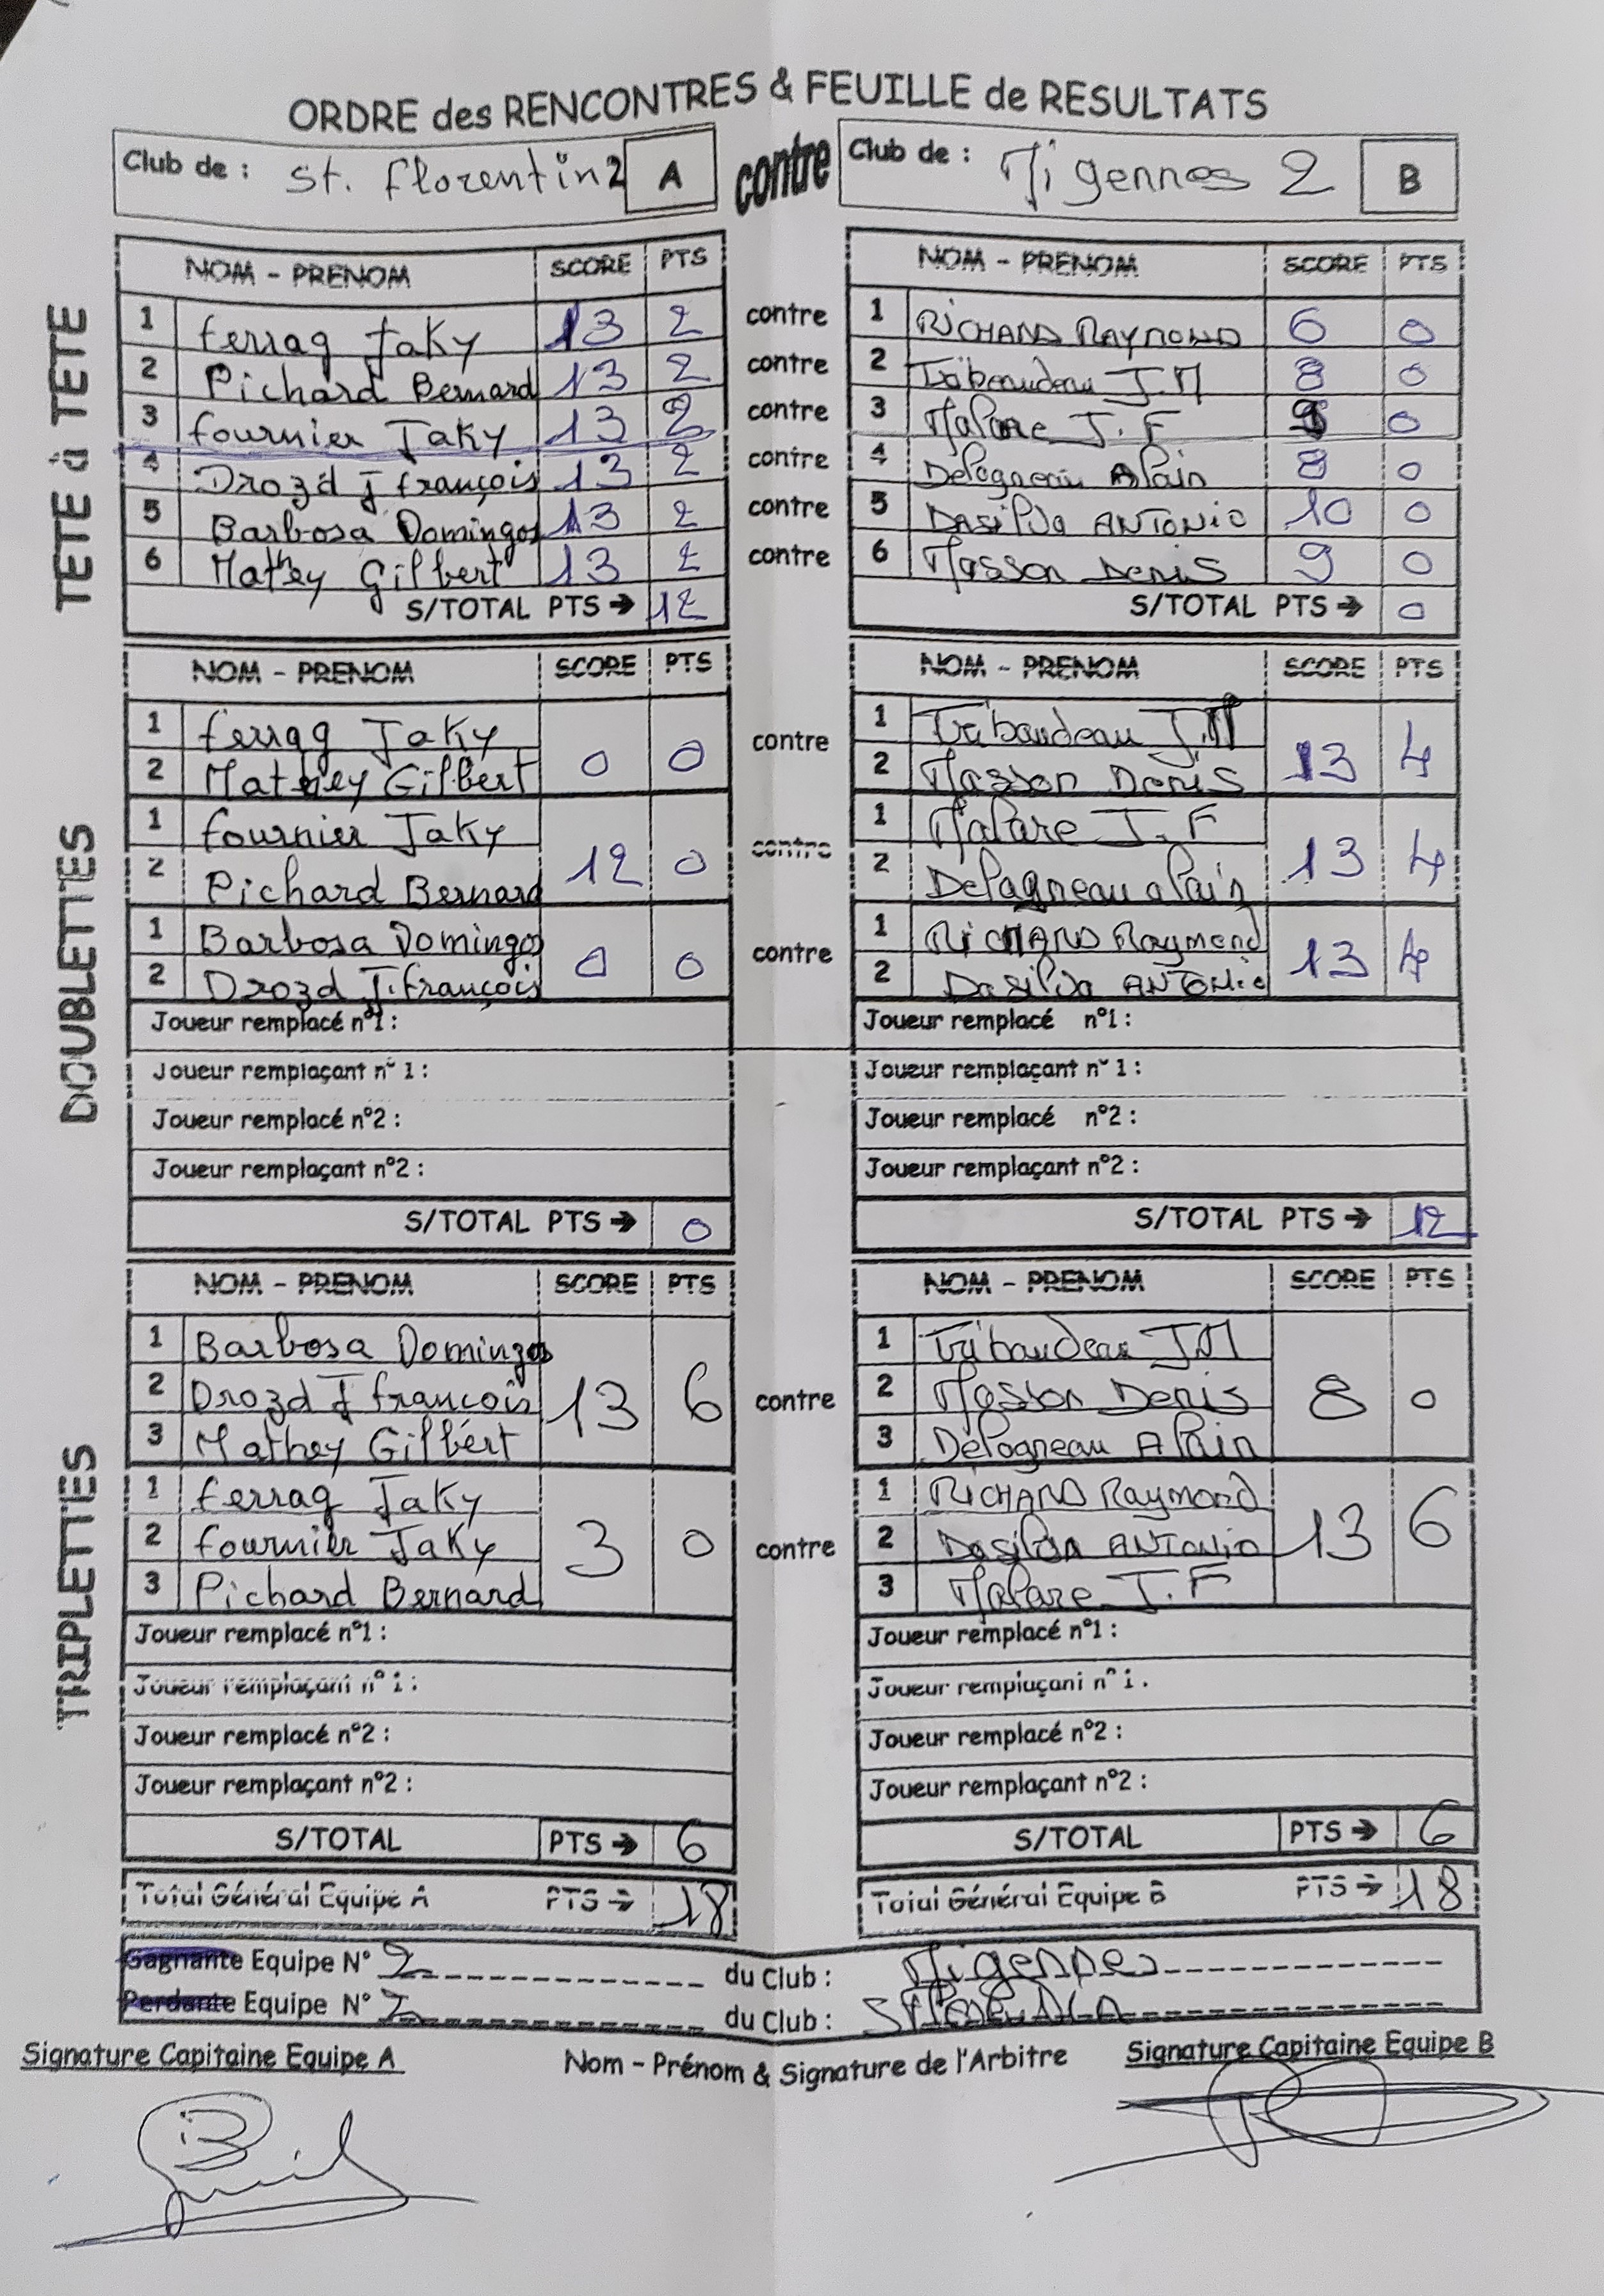 ORDRE des RENCONTRES & FEUILLE de RESULTATS
Club de : St. Florentin 2 A contre Club de : Migennes 2 B
TETE à TETE
NOM - PRENOM SCORE PTS NOM - PRENOM SCORE PTS
1 Ferrag Jaky 13 2 contre 1 RICHARD RAYMOND 6 0
2 Pichard Bernard 13 2 contre 2 Tribaudeau J.M 8 0
3 Fournier Jaky 13 2 contre 3 Malare J.F 0
4 Drozd J François 13 2 contre 4 Delagneau Alain 8 0
5 Barbosa Domingos 13 2 contre 5 Dasilva ANTONIO 10 0
6 Mathey Gilbert 13 2 contre 6 Masson Denis 9 0
S/TOTAL PTS → 12 S/TOTAL PTS → 0
DOUBLETTES
NOM - PRENOM SCORE PTS NOM - PRENOM SCORE PTS
1 Ferrag Jaky 1 Tribaudeau J.M
0 0 contre 13 4
2 Mathey Gilbert 2 Masson Denis
1 Fournier Jaky 1 Malare J.F
12 0 contre 13 4
2 Pichard Bernard 2 Delagneau alain
1 Barbosa Domingos 1 RICHARD Raymond
0 0 contre 13 4
2 Drozd J.François 2 Dasilva ANTONIO
Joueur remplacé n°1 : Joueur remplacé n°1 :
Joueur remplaçant n° 1 : Joueur remplaçant n° 1 :
Joueur remplacé n°2 : Joueur remplacé n°2 :
Joueur remplaçant n°2 : Joueur remplaçant n°2 :
S/TOTAL PTS → 0 S/TOTAL PTS → 12
TRIPLETTES
NOM - PRENOM SCORE PTS NOM - PRENOM SCORE PTS
1 Barbosa Domingos 1 Tribaudeau J.M
2 Drozd J François 13 6 contre 2 Masson Denis 8 0
3 Mathey Gilbert 3 Delagneau Alain
1 Ferrag Jaky 1 RICHARD Raymond
2 Fournier Jaky 3 0 contre 2 Dasilva ANTONIO 13 6
3 Pichard Bernard 3 Malare J.F
Joueur remplacé n°1 : Joueur remplacé n°1 :
Joueur remplaçant n° 1 : Joueur remplaçant n° 1 :
Joueur remplacé n°2 : Joueur remplacé n°2 :
Joueur remplaçant n°2 : Joueur remplaçant n°2 :
S/TOTAL PTS → 6 S/TOTAL PTS → 6
Total Général Equipe A PTS → 18 Total Général Equipe B PTS → 18
Gagnante Equipe N° 2 du Club : Migennes
Perdante Equipe N° 2 du Club :
Signature Capitaine Equipe A Nom - Prénom & Signature de l'Arbitre Signature Capitaine Equipe B